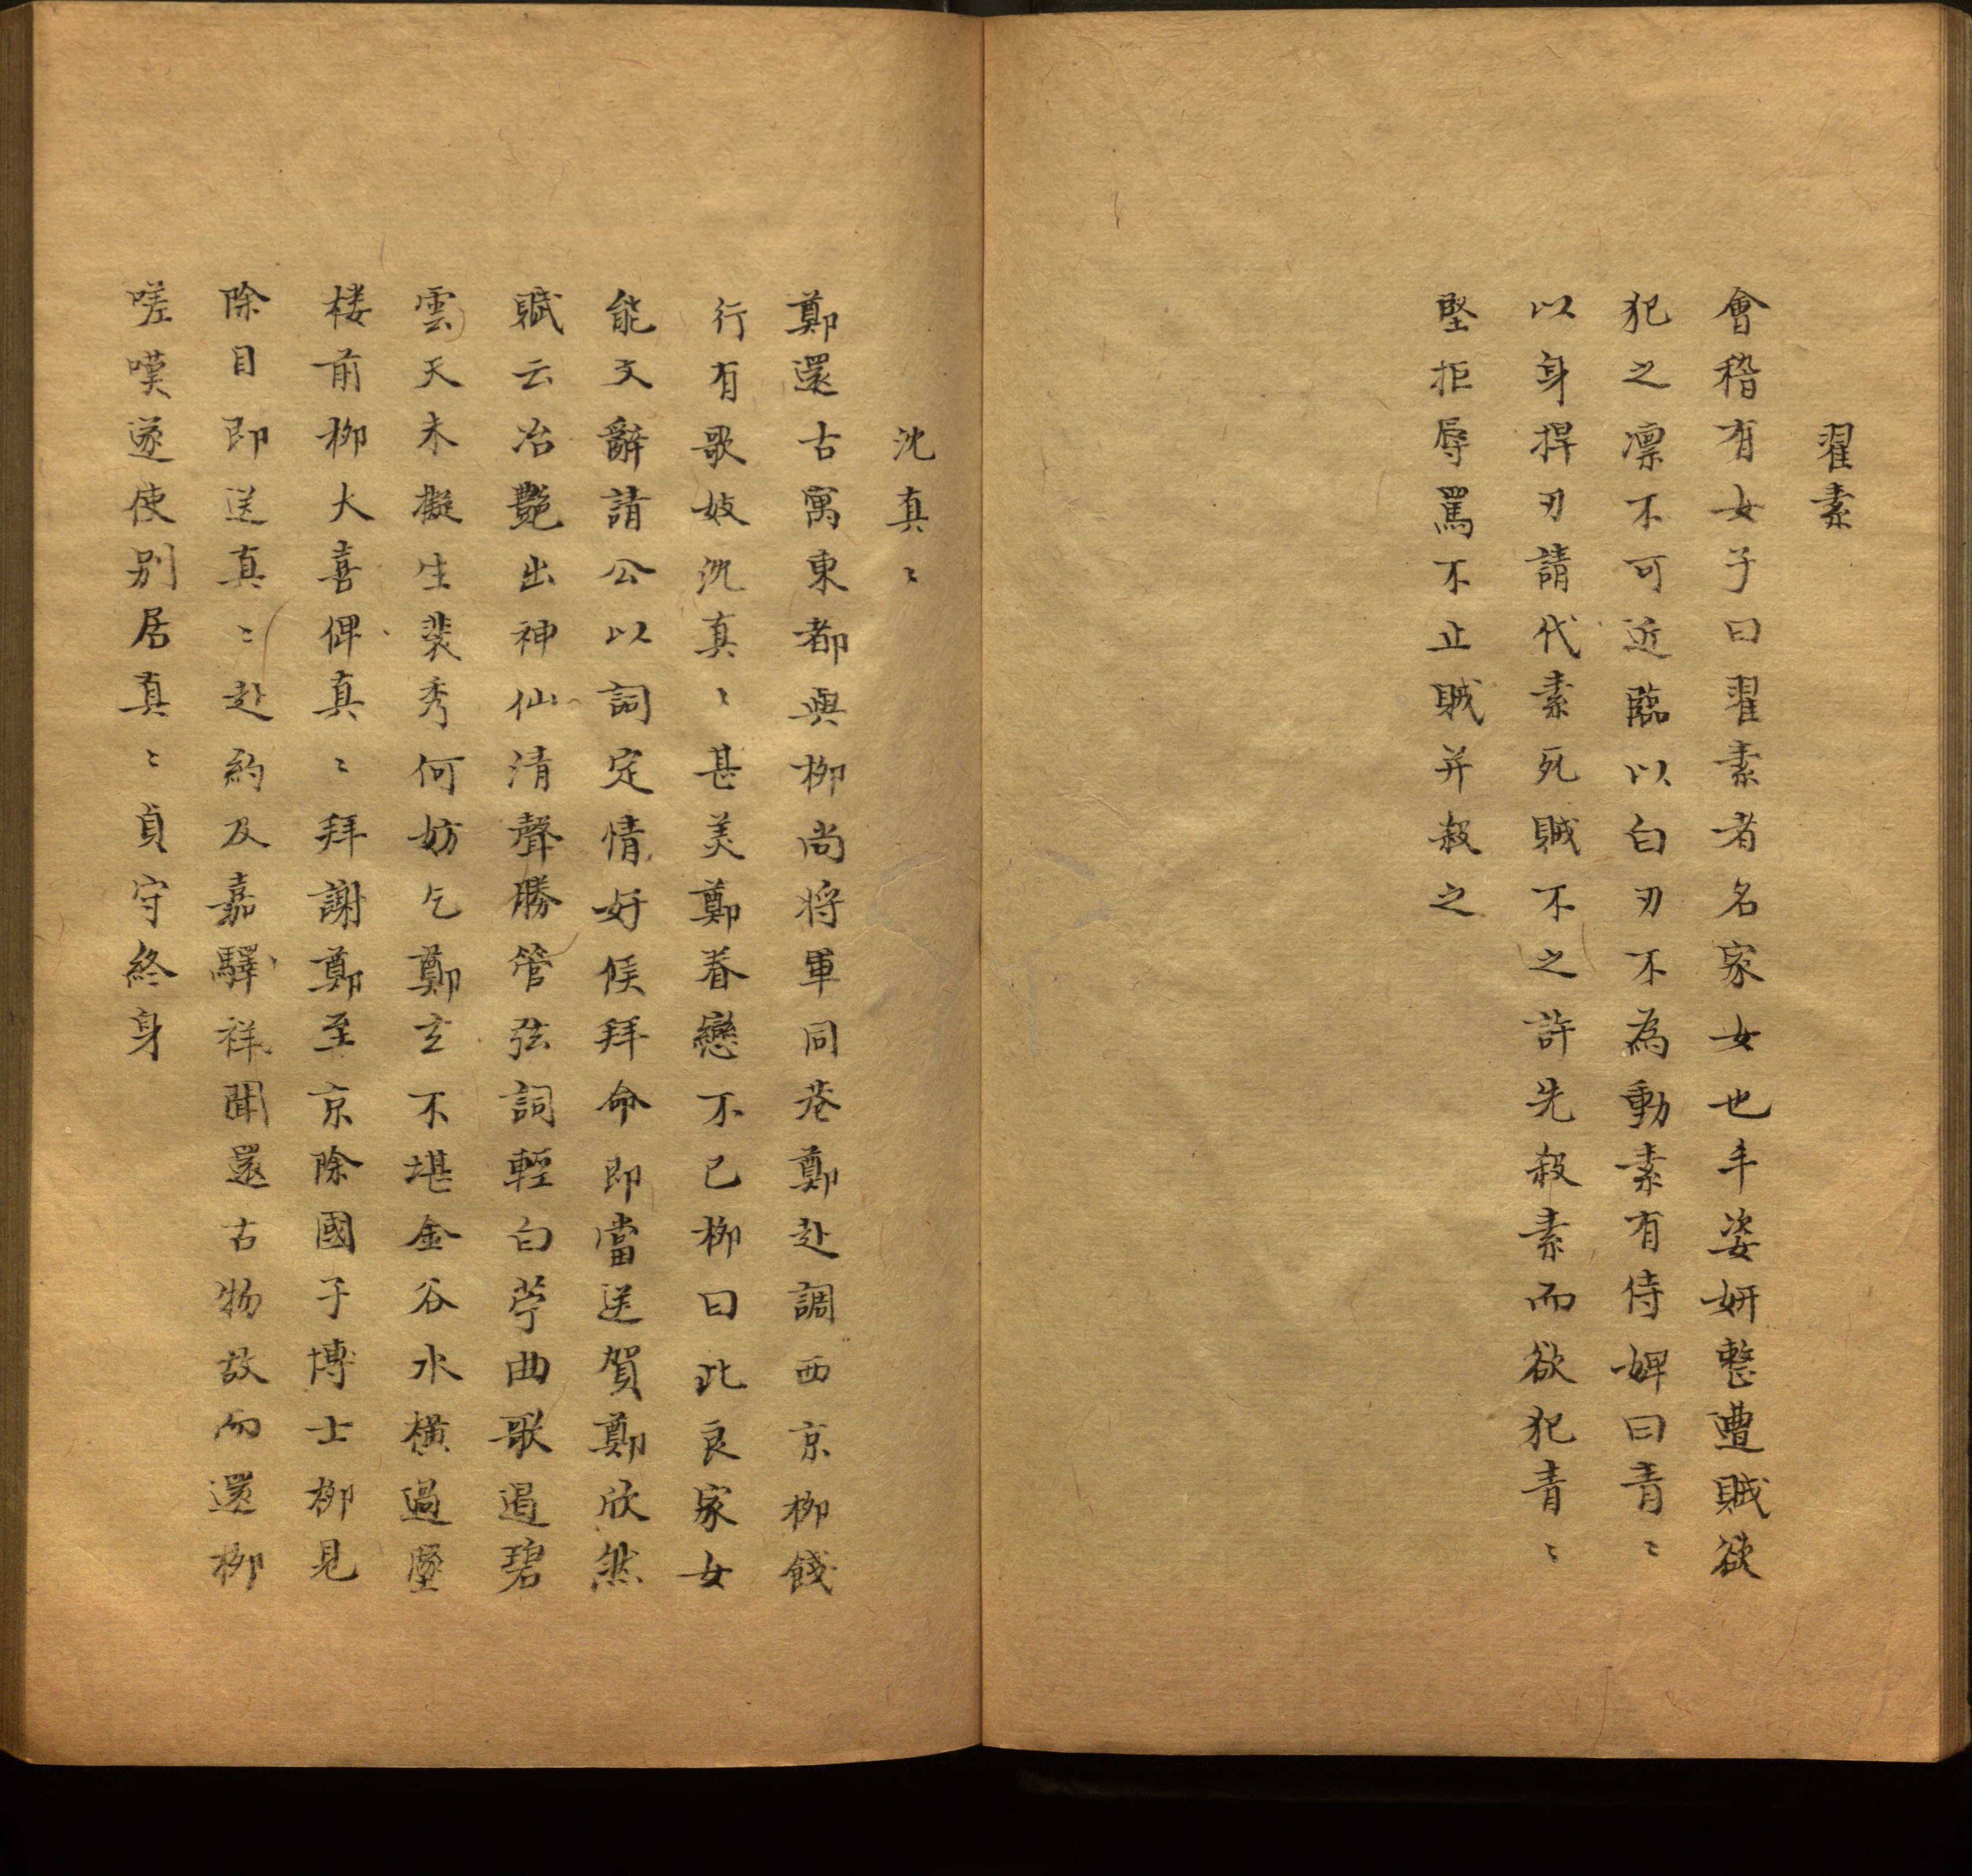 翟素
會稽有女子曰翟素者名家女也丰姿妍整遭賊欲
犯之凛不可近臨以白刃不為動素有侍婢曰青〻
以身捍刃請代素死賊不之許先殺素而欲犯青〻
堅拒辱罵不止賊并殺之
沈真〻
鄭還古寓東都與柳尚将軍同巷鄭赴調西京柳餞
行有歌妓沈真〻甚美鄭眷戀不已柳曰此良家女
能文辭請公以詞定情好候拜命即當送賀鄭欣然
賦云冶艷出神仙清聲勝管弦詞輕白苧曲歌遏碧
雲天未擬生裴秀何妨乞鄭玄不堪金谷水橫過墜
楼前柳大喜俾真〻拜謝鄭至京除國子博士柳見
除目即送真〻赴約及嘉驛祥聞還古物故而還柳
嗟嘆遂使别居真〻貞守終身